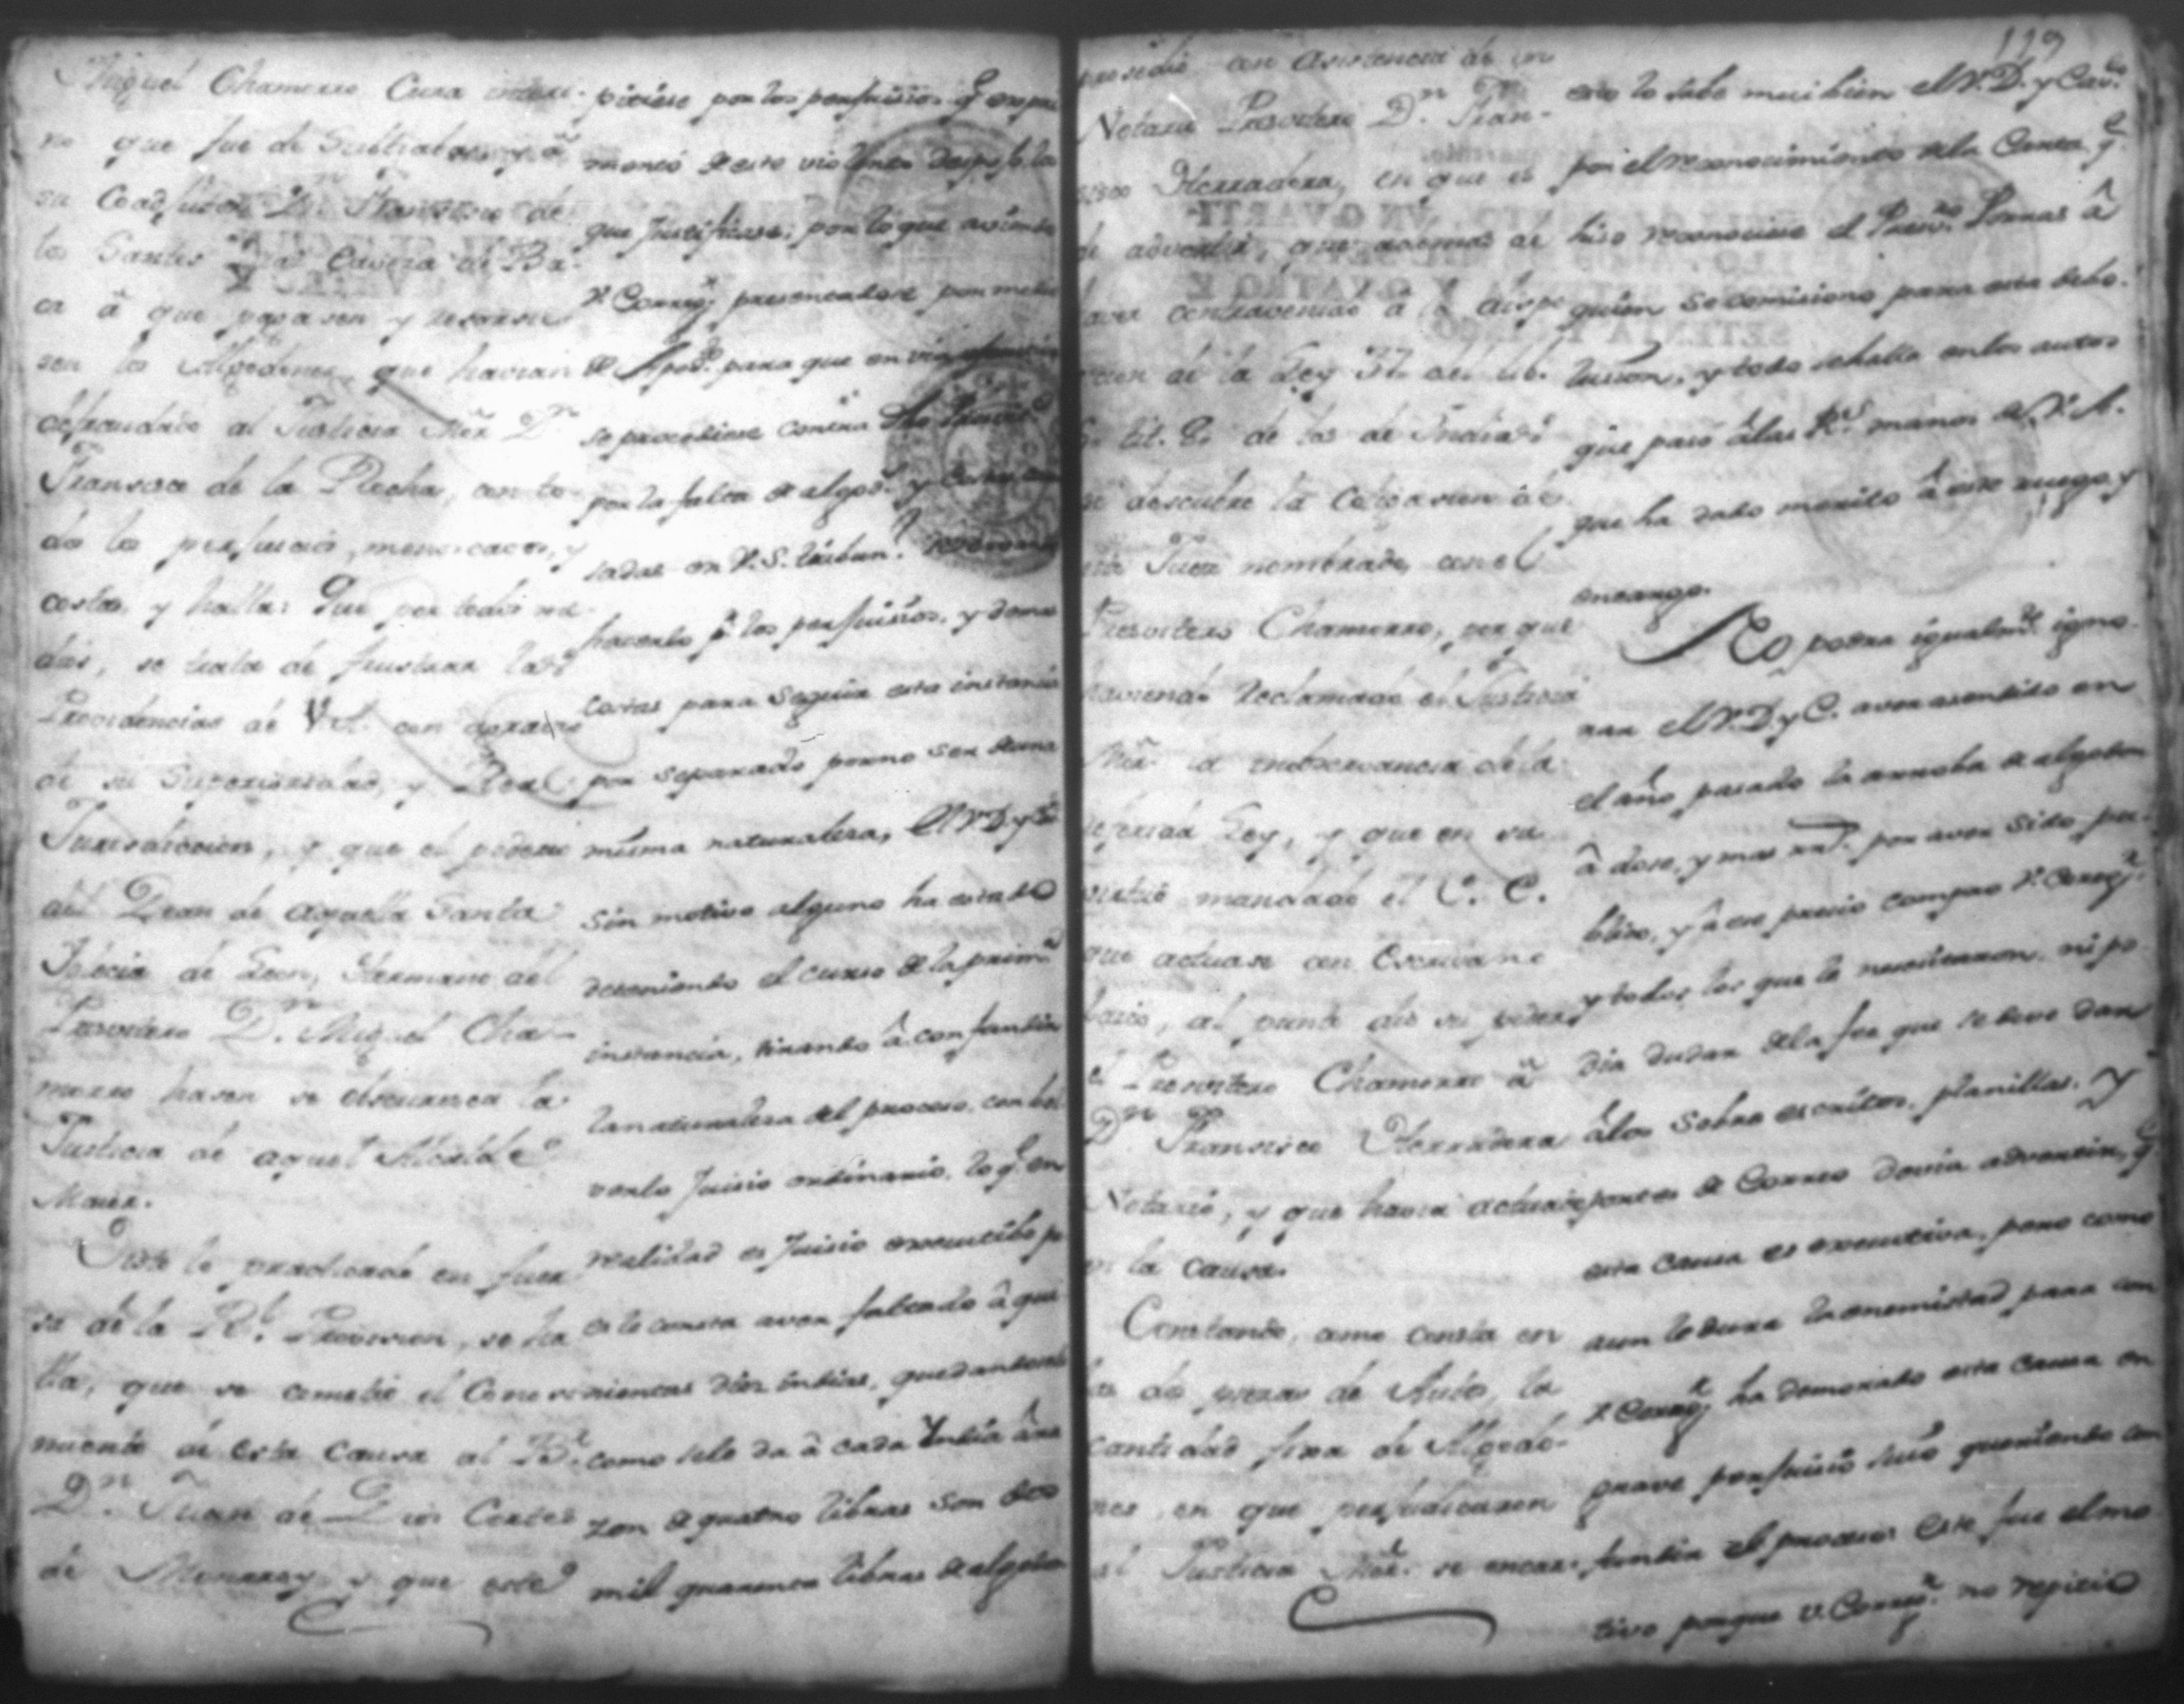 Miguel Chamorro Cura interi-
no que fue de Subtiaba, y â
su Coadjutor Dn. Francisco de
los Santos
ca â que pagasen y
sen los Algodones, que havian
defraudado al Justicia Mör. Dn.
Fransisco de la Rocha, con to-
do los perjuicios, menoscavos, y
costas, y halla: Que por todos me-
dios, se trata de frustrar las
Providencias de V.A. con
de su Superioridad, y Real
Jurisdiccion, y que el poderio
del Dean de aquella Santa
Iglecia de Leon, Hermano del
Presvitero Dn. Miguel Cha-
morro hasen se obscuresca la
Justicia de aquel Alcalde
Maior.
Visto lo practicado en fuer
sa de la Rl. Provision, se ha
lla, que se cometio el Conosi
miento de esta causa al Br.
Dn. Juan de Dios Cortes
de Monrroy, y que este
pitiése por los perjuisios q̃
monto de este violento despojo la
que justificase; por lo que
V. Corregr. presentandose por medio
de Apodo. para que en via
se procediese contra dho
por la falta de algon. y
sadas en V.S. tribunl.
hacerlo pr. los perjuisios, y demas
costas para seguir esta instancia
por separado por no ser de una
misma naturalesa, El V.D. y Co.
sin motivo alguno ha estado
deteniendo el curso de la prima.
instancia, tirando â confundir
la naturalesa del proceso, con bol
verlo juisio ordinario, lo q̃ en
realidad es juisio executibo pr.
q̃ le consta aver faltado â qui
nientas dies indias, quedandose
como sele da â cada india â ra
zon de quatro libras son dos
mil quarenta libras de algodon
119
presidió con asistencia de un
Notario Presvitero Dn. Fran-
sisco Herradora, en que es
de advertir, que ademas de
haver contravenido â la dispo
sicion de la Ley 37. del lib.
tit. 8. de las de Indias
se descubre la coligasion de
este Juez nombrado, con el
Presvitero Chamorro, por que
haviendo reclamado el Justicia
Mör. la inobservancia de la
referida Ley, y que en su
virtud mandado el V. C.
que actuase con Escrivano
laico, al punto dio su poder
el Presvitero Chamorro â
Dn. Fransisco Herradora
Notario, y que havia actuado
en la causa.
Constando, como consta en
las dos piesas de Autos, la
cantidad fixa de Algodo-
nes, en que perjudicaron
al Justicia Mör. se encar-
esto lo sabe mui bien el V.D. y Cavdo.
por el reconocimiento de la Carta q̃
hiso reconociese el Presvo. Porras â
quien se comisiono para esta debo-
lusion, y todo se halla en los autos
que paso â las Rs. manos de V.A.
que ha dado merito â este ruego y
encargo.
No podra igualmte. igno-
rar el V.D. y C. aver asendido en
el año pasado la arroba de algodon
â dose, y mas rrs. por aver sido pu-
blico, y â ese precio compro V. Corregr.
y todos los que le necesitaron, ni po-
dia dudar de la fee que se deve dar
â los sobre escritos, planillas, y
portes de Correo devia advertir, q̃
esta causa es executiva, pero como
aun le dura la enemistad para con
V. Corregr. ha demorado esta causa en
grave perjuisio suio queriendo con
fundir el proceso. Este fue el mo
tivo porque V. Corregr. no repitio